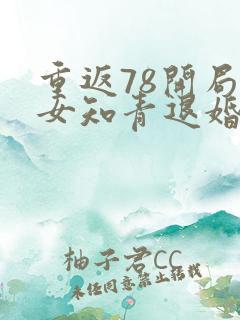 重返78开局
女知青退婚
柚子君CC
未经同意禁止转载